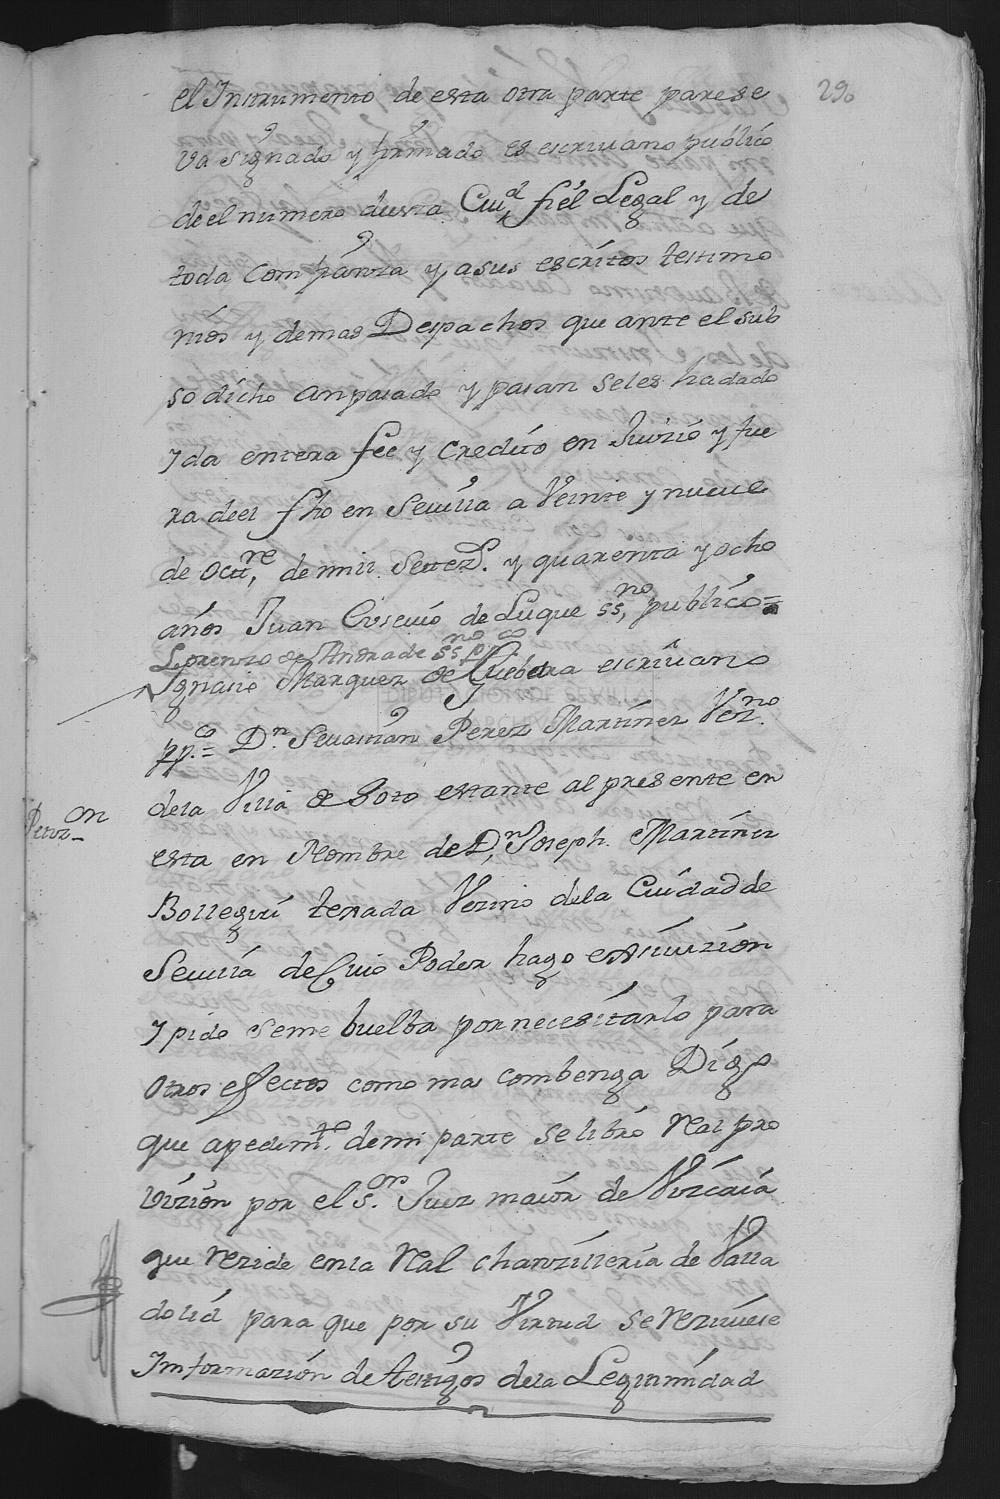 290
el Instrumento de esta otra parte parese
va signado y firmado es escriuano publico
de el numero desta Ciud fiel Legal y de
toda Comfianza y, asus escritos testimo
nios y demas Despachos que ante el sub
so dicho an pasado y pasan seles ha dado
y da entera fee y Credito en Juizio y, fue
ra deel fho en Seuilla a Veinte y nueue
de Octre, de mill Setezs. y quarenta y ocho
años Juan Eusevio de Luque ssno, publico =
Lorenzo de Andrade ssno pco
Ygnasio Marquez de Guebara escriuano
ppco = Dn. Seuastian Perez Martinez Vezno.
Petizon
dela Villa de Soto estante al presente en
esta en Nombre de Dn, Joseph. Martinez
Bollegui texada Vezino dela Ciudad de
Seuilla de Cuio Poder hago exsiuizion
y pido seme buelba por necesitarlo para
otros efectos como mas combenga Digo
que apedimto. de mi parte se libró Real pro
vizion por el sor. Juez maior de Vizcaia
que rezide en la Real chanzilleria de Valla
dolid para que por su Virtud se reziuiese
Informazion de testigos dela Legitimidad